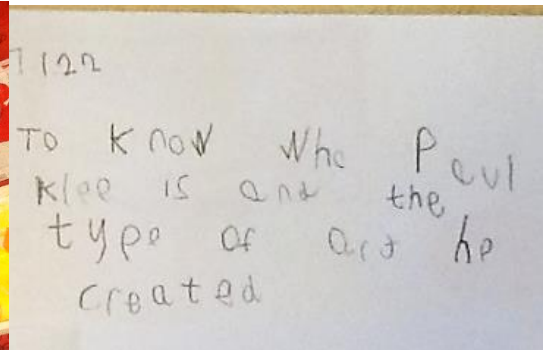 1122
To know who Paul
Klee is and the
type of art he
created